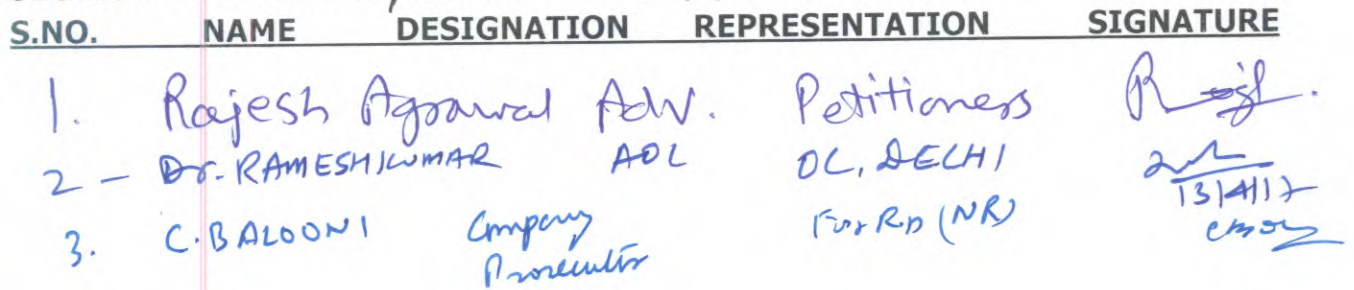 S.NO. NAME DESIGNATION REPRESENTATION SIGNATURE
1. Rajesh Agrawal Adv. Petitioners
2 - Dr. RAMESH KUMAR AOL OL, DELHI
13/4/17
3. C. BALOONI Company Prosecutor For RD (NR)